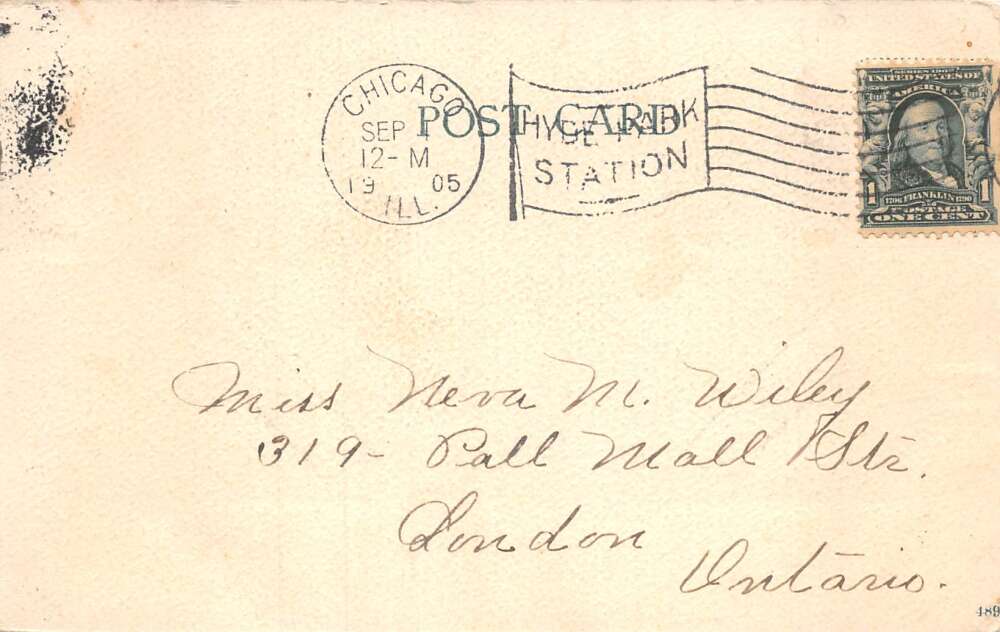 POST CARD
CHICAGO
SEP
12- M
19 05
ILL.
HYDE PARK
STATION
SERIES 1902
UNITED STATES OF
AMERICA
1
1706 FRANKLIN 1790
POSTAGE
ONE CENT
Miss Neva M. Wiley
319- Pall Mall Str.
London
Ontario.
489